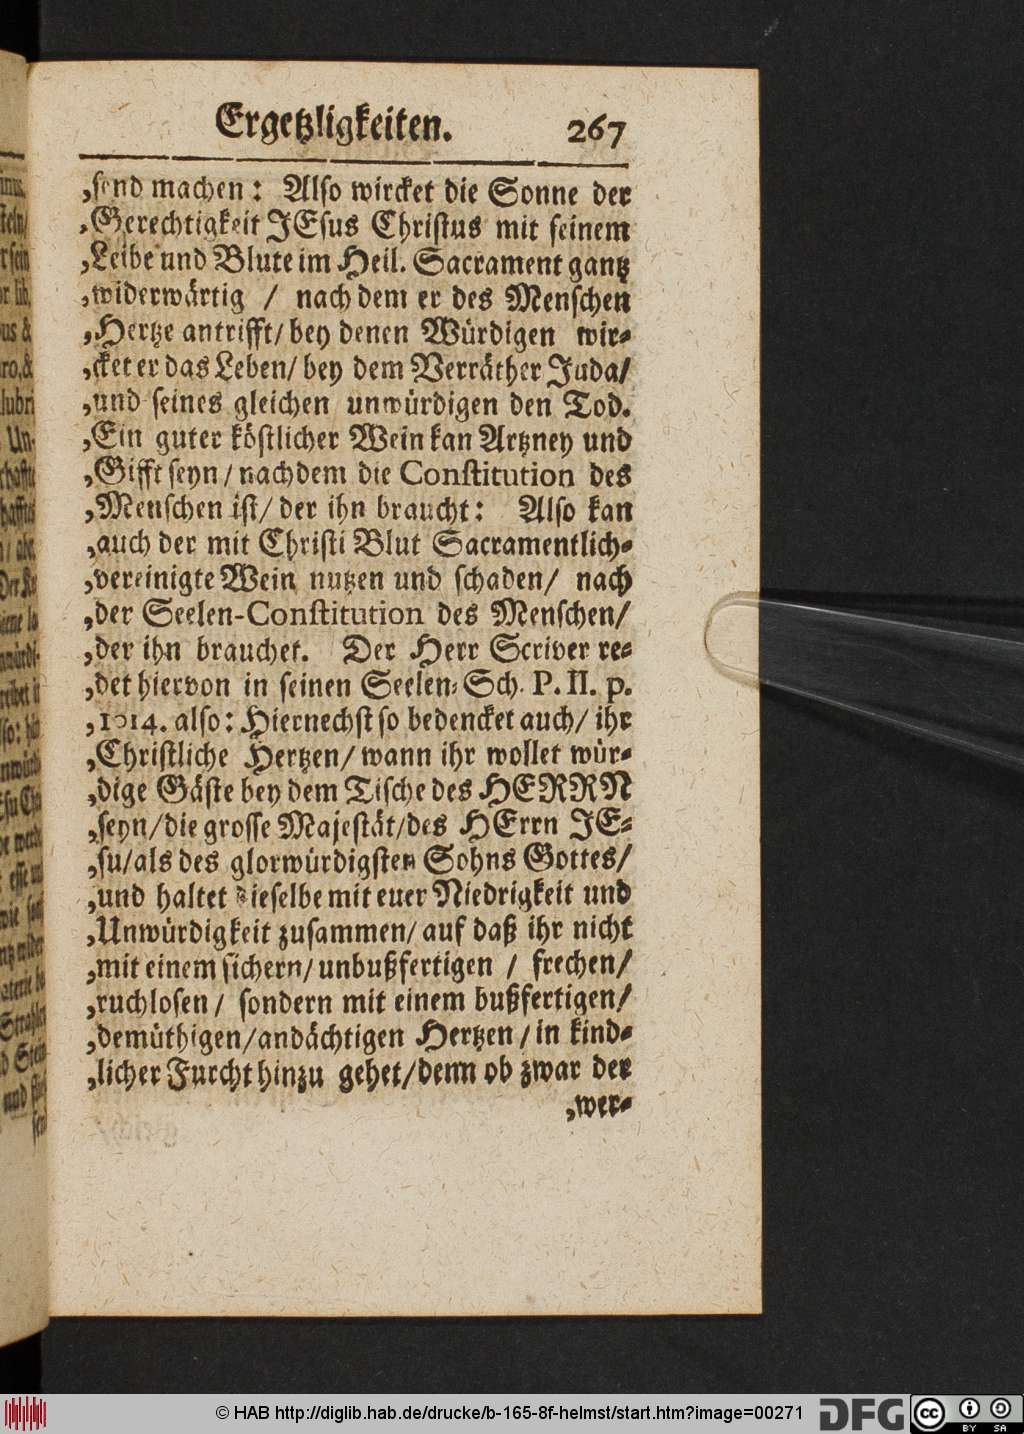 Ergetzligkeiten. 267
,send machen: Also wircket die Sonne der
,Gerechtigkeit JEsus Christus mit seinem
,Leibe und Blute im Heil. Sacrament gantz
,widerwärtig / nach dem er des Menschen
,Hertze antrifft/ bey denen Würdigen wir-
,cket er das Leben/ bey dem Verräther Juda/
,und seines gleichen unwürdigen den Tod.
,Ein guter köstlicher Wein kan Artzney und
,Gifft seyn/ nachdem die Constitution des
,Menschen ist/ der ihn braucht: Also kan
,auch der mit Christi Blut Sacramentlich-
,vereinigte Wein nutzen und schaden/ nach
,der Seelen-Constitution des Menschen/
,der ihn brauchet. Der Herr Scriver re-
,det hiervon in seinen Seelen-Sch. P. II. p.
,1014. also: Hiernechst so bedencket auch/ ihr
,Christliche Hertzen/ wann ihr wollet wür-
,dige Gäste bey dem Tische des HERRN
,seyn/ die grosse Majestät/ des HErrn JE-
,su/ als des glorwürdigsten Sohns Gottes/
,und haltet dieselbe mit euer Niedrigkeit und
,Unwürdigkeit zusammen/ auf daß ihr nicht
,mit einem sichern/ unbußfertigen / frechen/
,ruchlosen/ sondern mit einem bußfertigen/
,demüthigen/ andächtigen Hertzen/ in kind-
,licher Furcht hinzu gehet/ denn ob zwar der
,wer-
© HAB http://diglib.hab.de/drucke/b-165-8f-helmst/start.htm?image=00271
DFG
cc BY SA